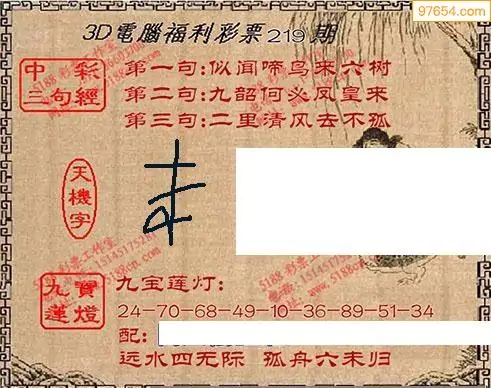 97654.com
3D電腦福利彩票219期
中彩
三句經
第一句:似闻啼鸟来六树
第二句:九韶何必凤皇来
第三句:二里清风去不孤
天機字
九寶
蓮燈
九宝莲灯:
24-70-68-49-10-36-89-51-34
配:
远水四无际 孤舟六未归